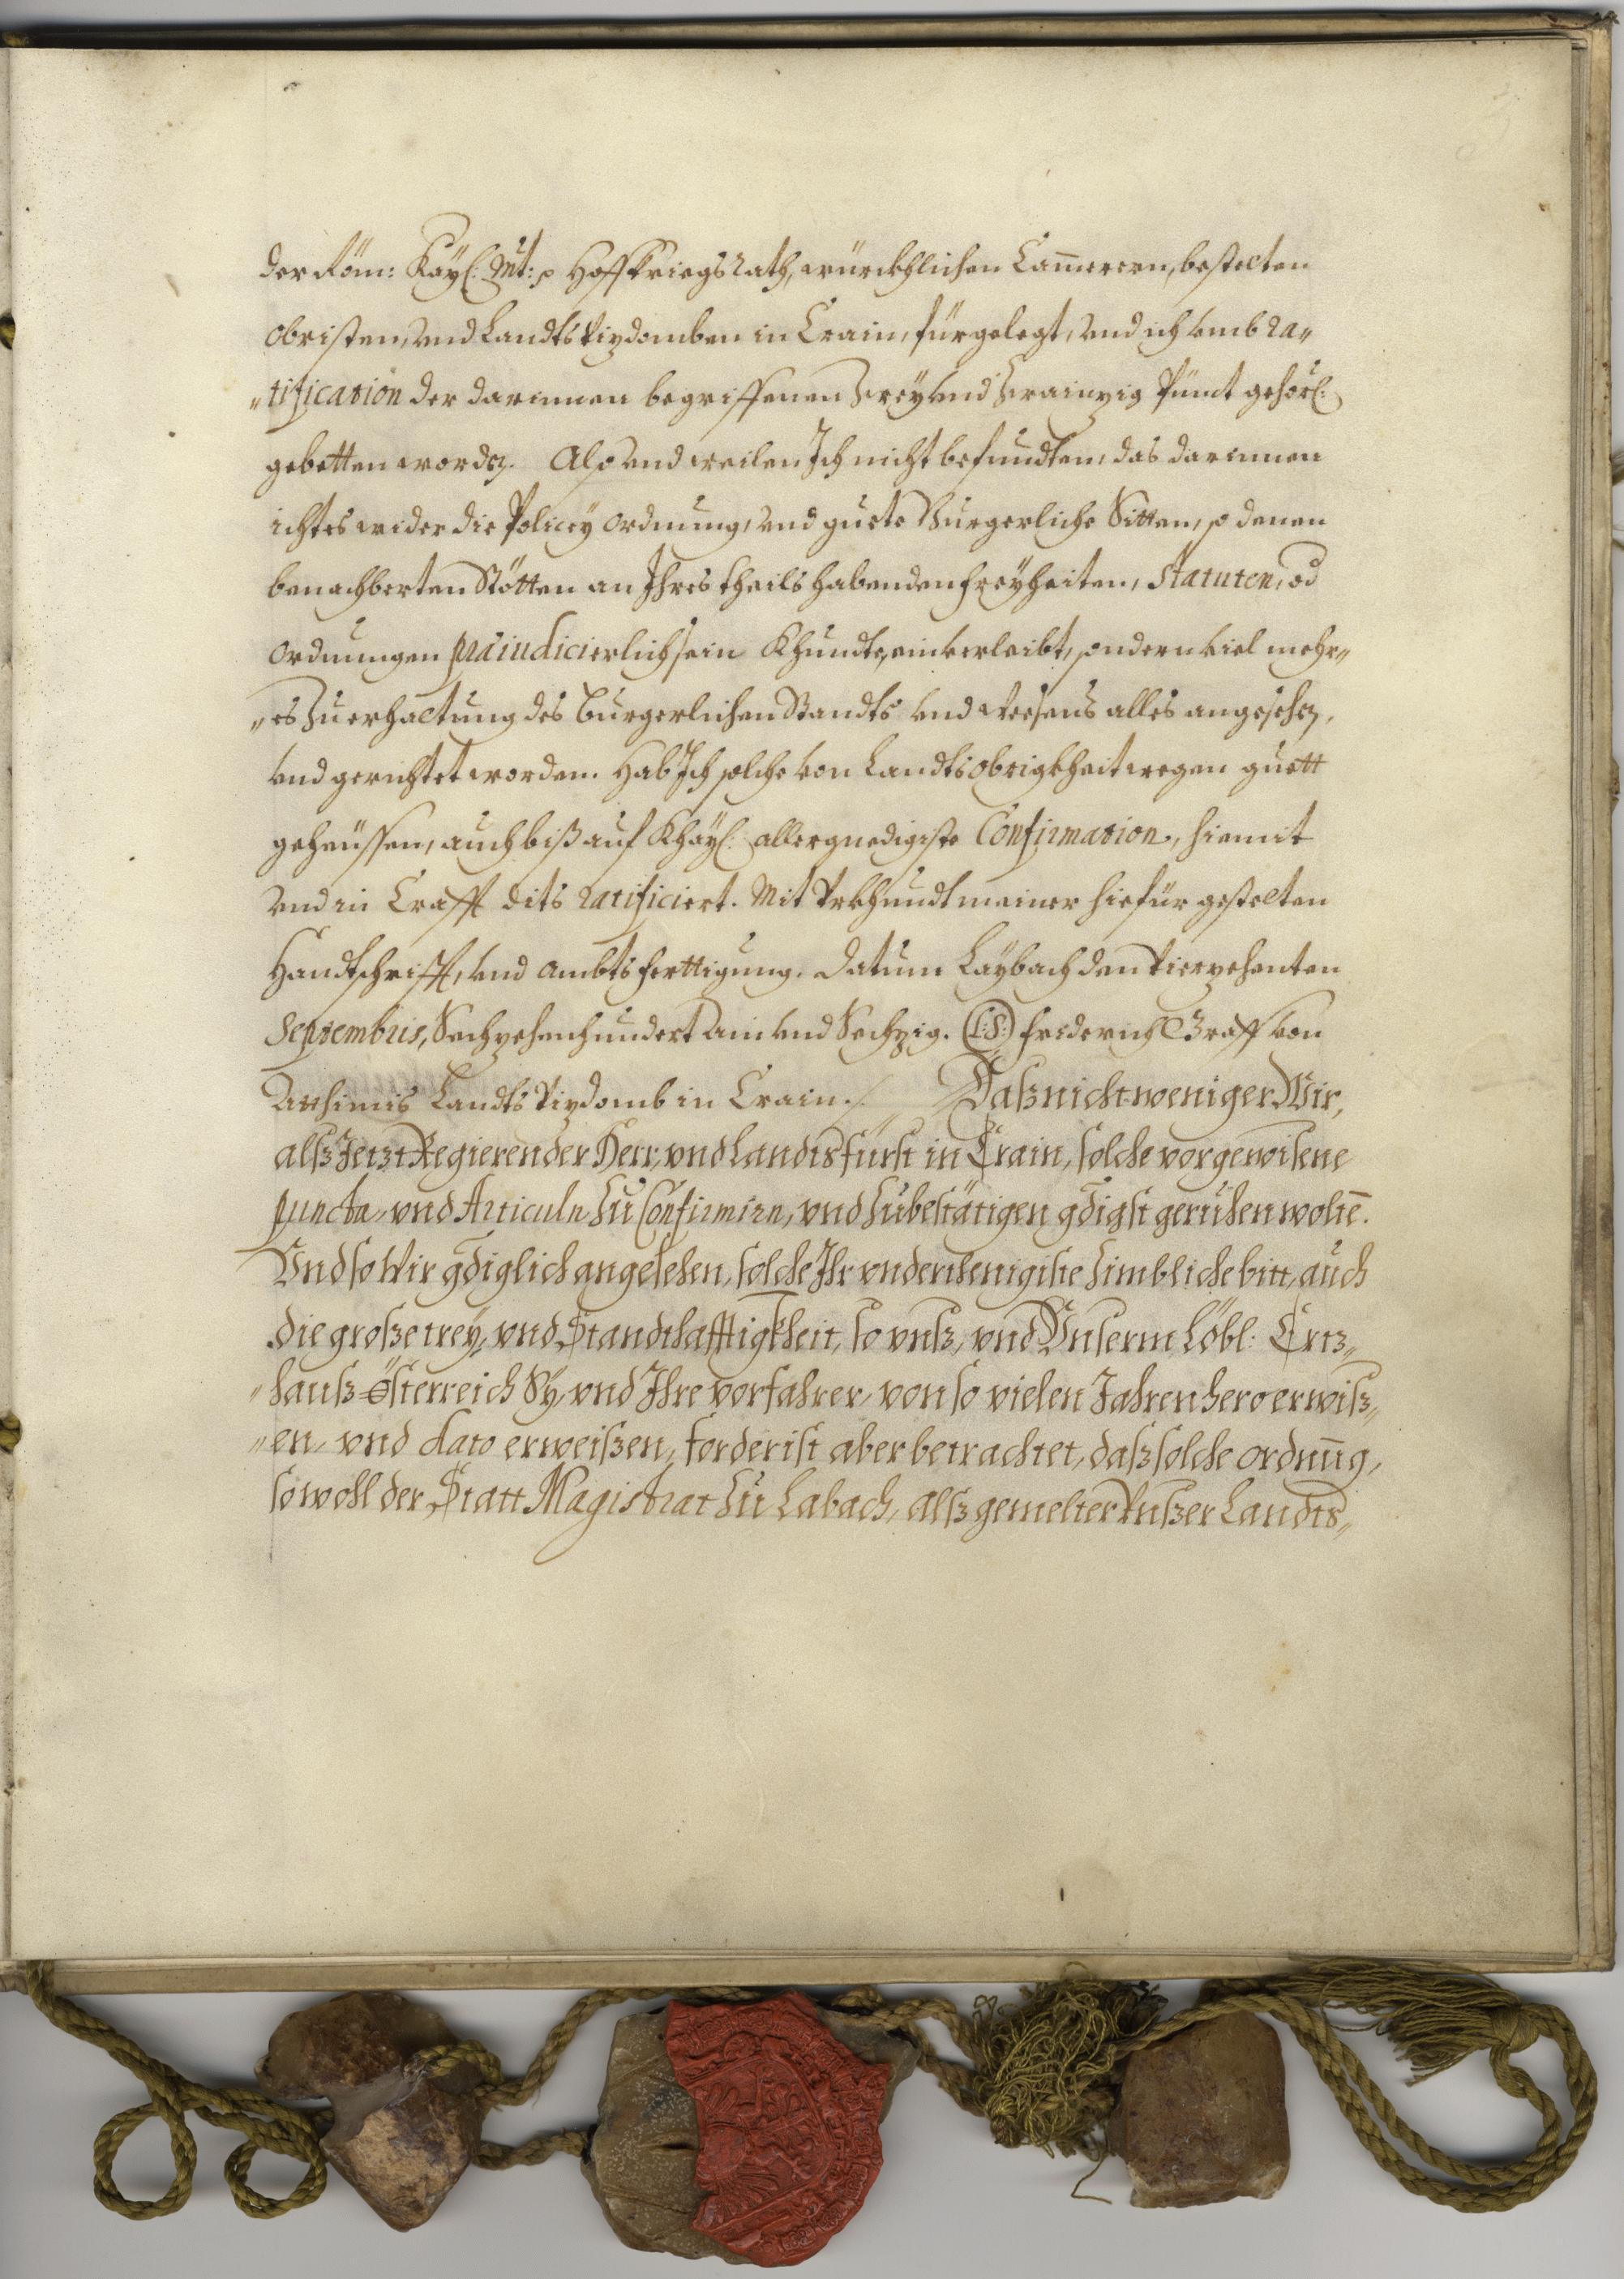 der Röm: Kaÿl: Mt: p Hoffkriegsrath, würckhlichen Cammerern, bestelten
obristen, vnd Landts Vizdomben in Crain, fürgelegt, vnd ich vmb ra„
„tification der darinnen begriffenen Zweÿ vnd Zwainzig Punct gehorß:
gebetten worden. Also vnd weilen Ich nicht befundten, das darinnen
ichtes wider die Policeÿ ordnung, vnd guete Burgerliche Sitten, so denen
benachberten Stötten an Ihres theils habenden freÿheiten, Statuten, od
ordnungen præiudicierlich sein Khundte, einverleibt, sondern viel mehr„
„es Zu erhaltung des burgerlichen Standts vnd weesens alles angesehen,
vnd gerichtet worden. Hab Ich solche von Landts obrigkheit wegen guett
geheüssen, auch biß auf Khaÿl: allergnedigiste Confirmation, hiemit
vnd in Crafft dits ratificiert. Mit Vrkhundt meiner hiefür gestelten
Handtschrifft, vnd ambts ferttigung. Datum Laÿbach den Vierzehenten
Septembris, Sechzehenhundert Ain vnd Sechzig. (L:S:) Friderich Graff von
Atthimis Landts Vizdomb in Crain ./. Daß nicht weniger Wir,
alß Jetzt Regierender Herr, vnd Landtsfürst in Crain, solche vorgewisene
puncta, vnd Articuln zu Confirmirn, vnd zubestätigen gdigist geruhen wolte.
Vnd so Wir gdiglich angesehen, solche Ihr vnderthenigiste zimbliche bitt, auch
die große treÿ, vnd Standthafftigkheit, so vnß, vnd Vnserm Löbl: Ertz„
„hauß Österreich Sÿ, vnd Ihre vorfahrer, von so vielen Jahren hero erwiß„
„en, vnd dato erweißen, forderist aber betrachtet, daß solche ordnung,
sowohl der Statt Magistrat zu Labach, alß gemelter Vnßer Landts„